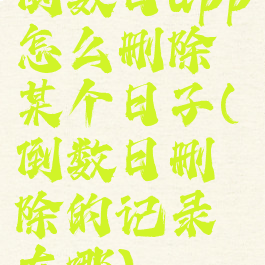 倒数日app
怎么删除
某个日子(
倒数日删
除的记录
在哪)